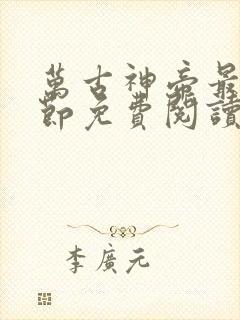 萬古神帝最
節免費閱讀
李廣元